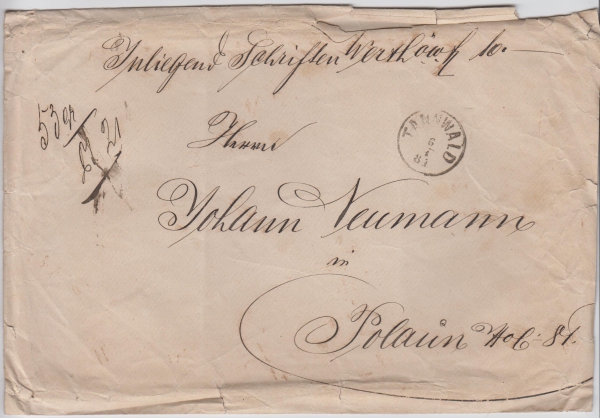 Inliegend Schriften Werth ö.w. f 10.—
53 gr
21
TANNWALD
81
Herrn
Johann Neumann
in
Polaun No C: 81.